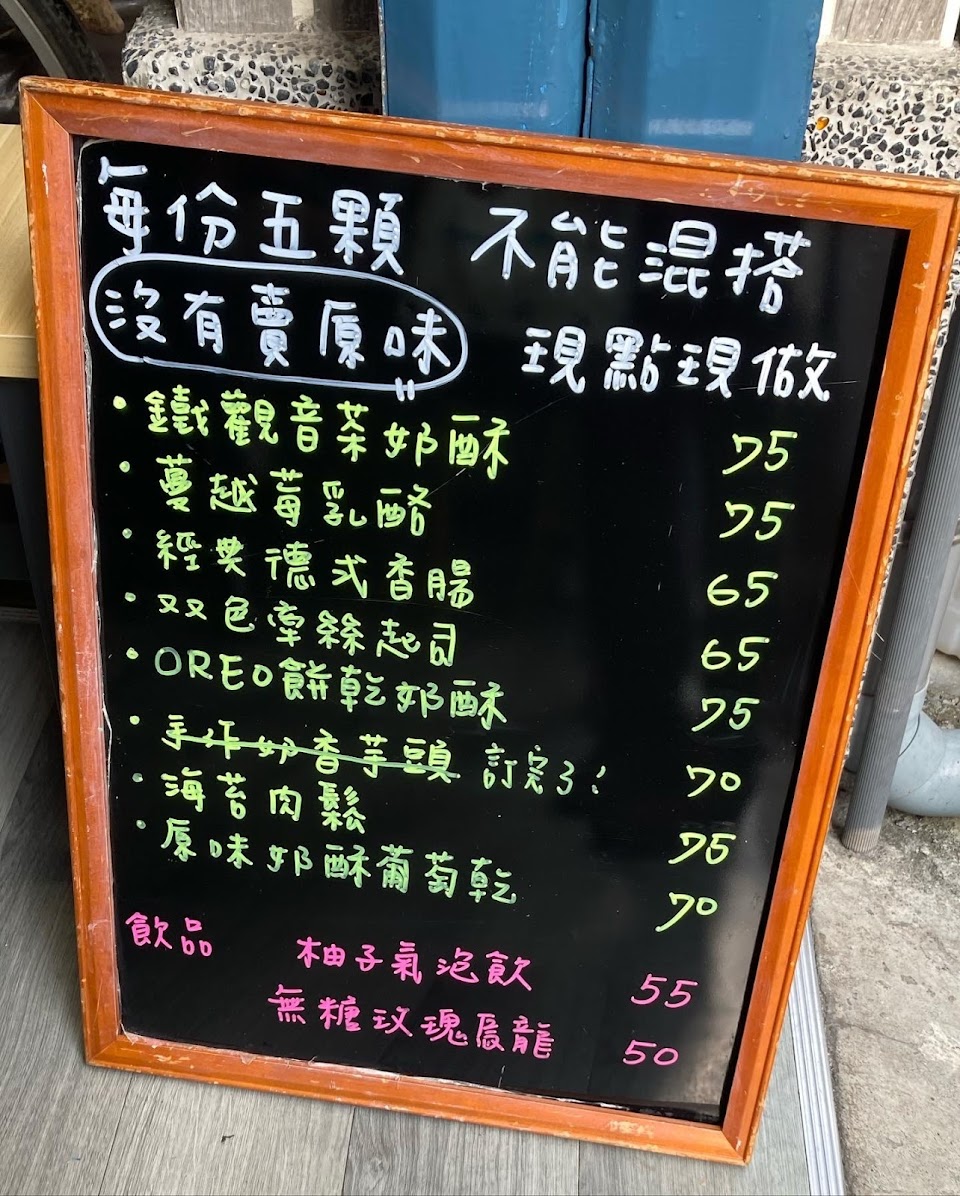 每份五顆 不能混搭
沒有賣原味 現點現做
• 鐵觀音茶奶酥 75
• 蔓越莓乳酪 75
• 經典德式香腸 65
• 双色牽絲起司 65
• OREO餅乾奶酥 75
• 手作奶香芋頭 訂完了! 70
• 海苔肉鬆 75
• 原味奶酥葡萄乾 70
飲品 柚子氣泡飲 55
無糖玫瑰烏龍 50